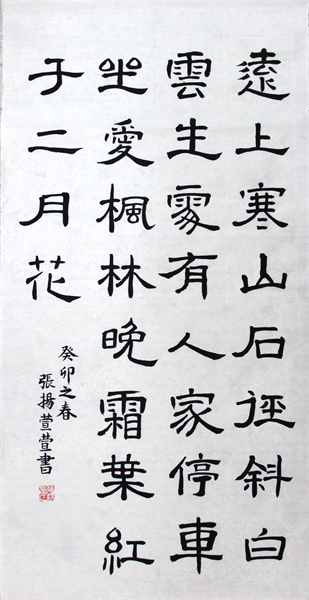 遠上寒山石徑斜白
雲生處有人家停車
坐愛楓林晚霜葉紅
于二月花
癸卯之春
張揚萱萱書